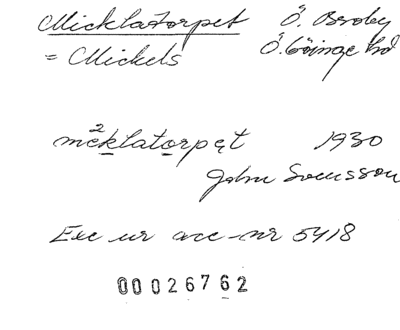 Micklatorpet Ö. Broby
= Mickels Ö. Göinge hd
mę²klatorpęt 1930
John Svensson
Exc ur acc-nr 5418
00026762